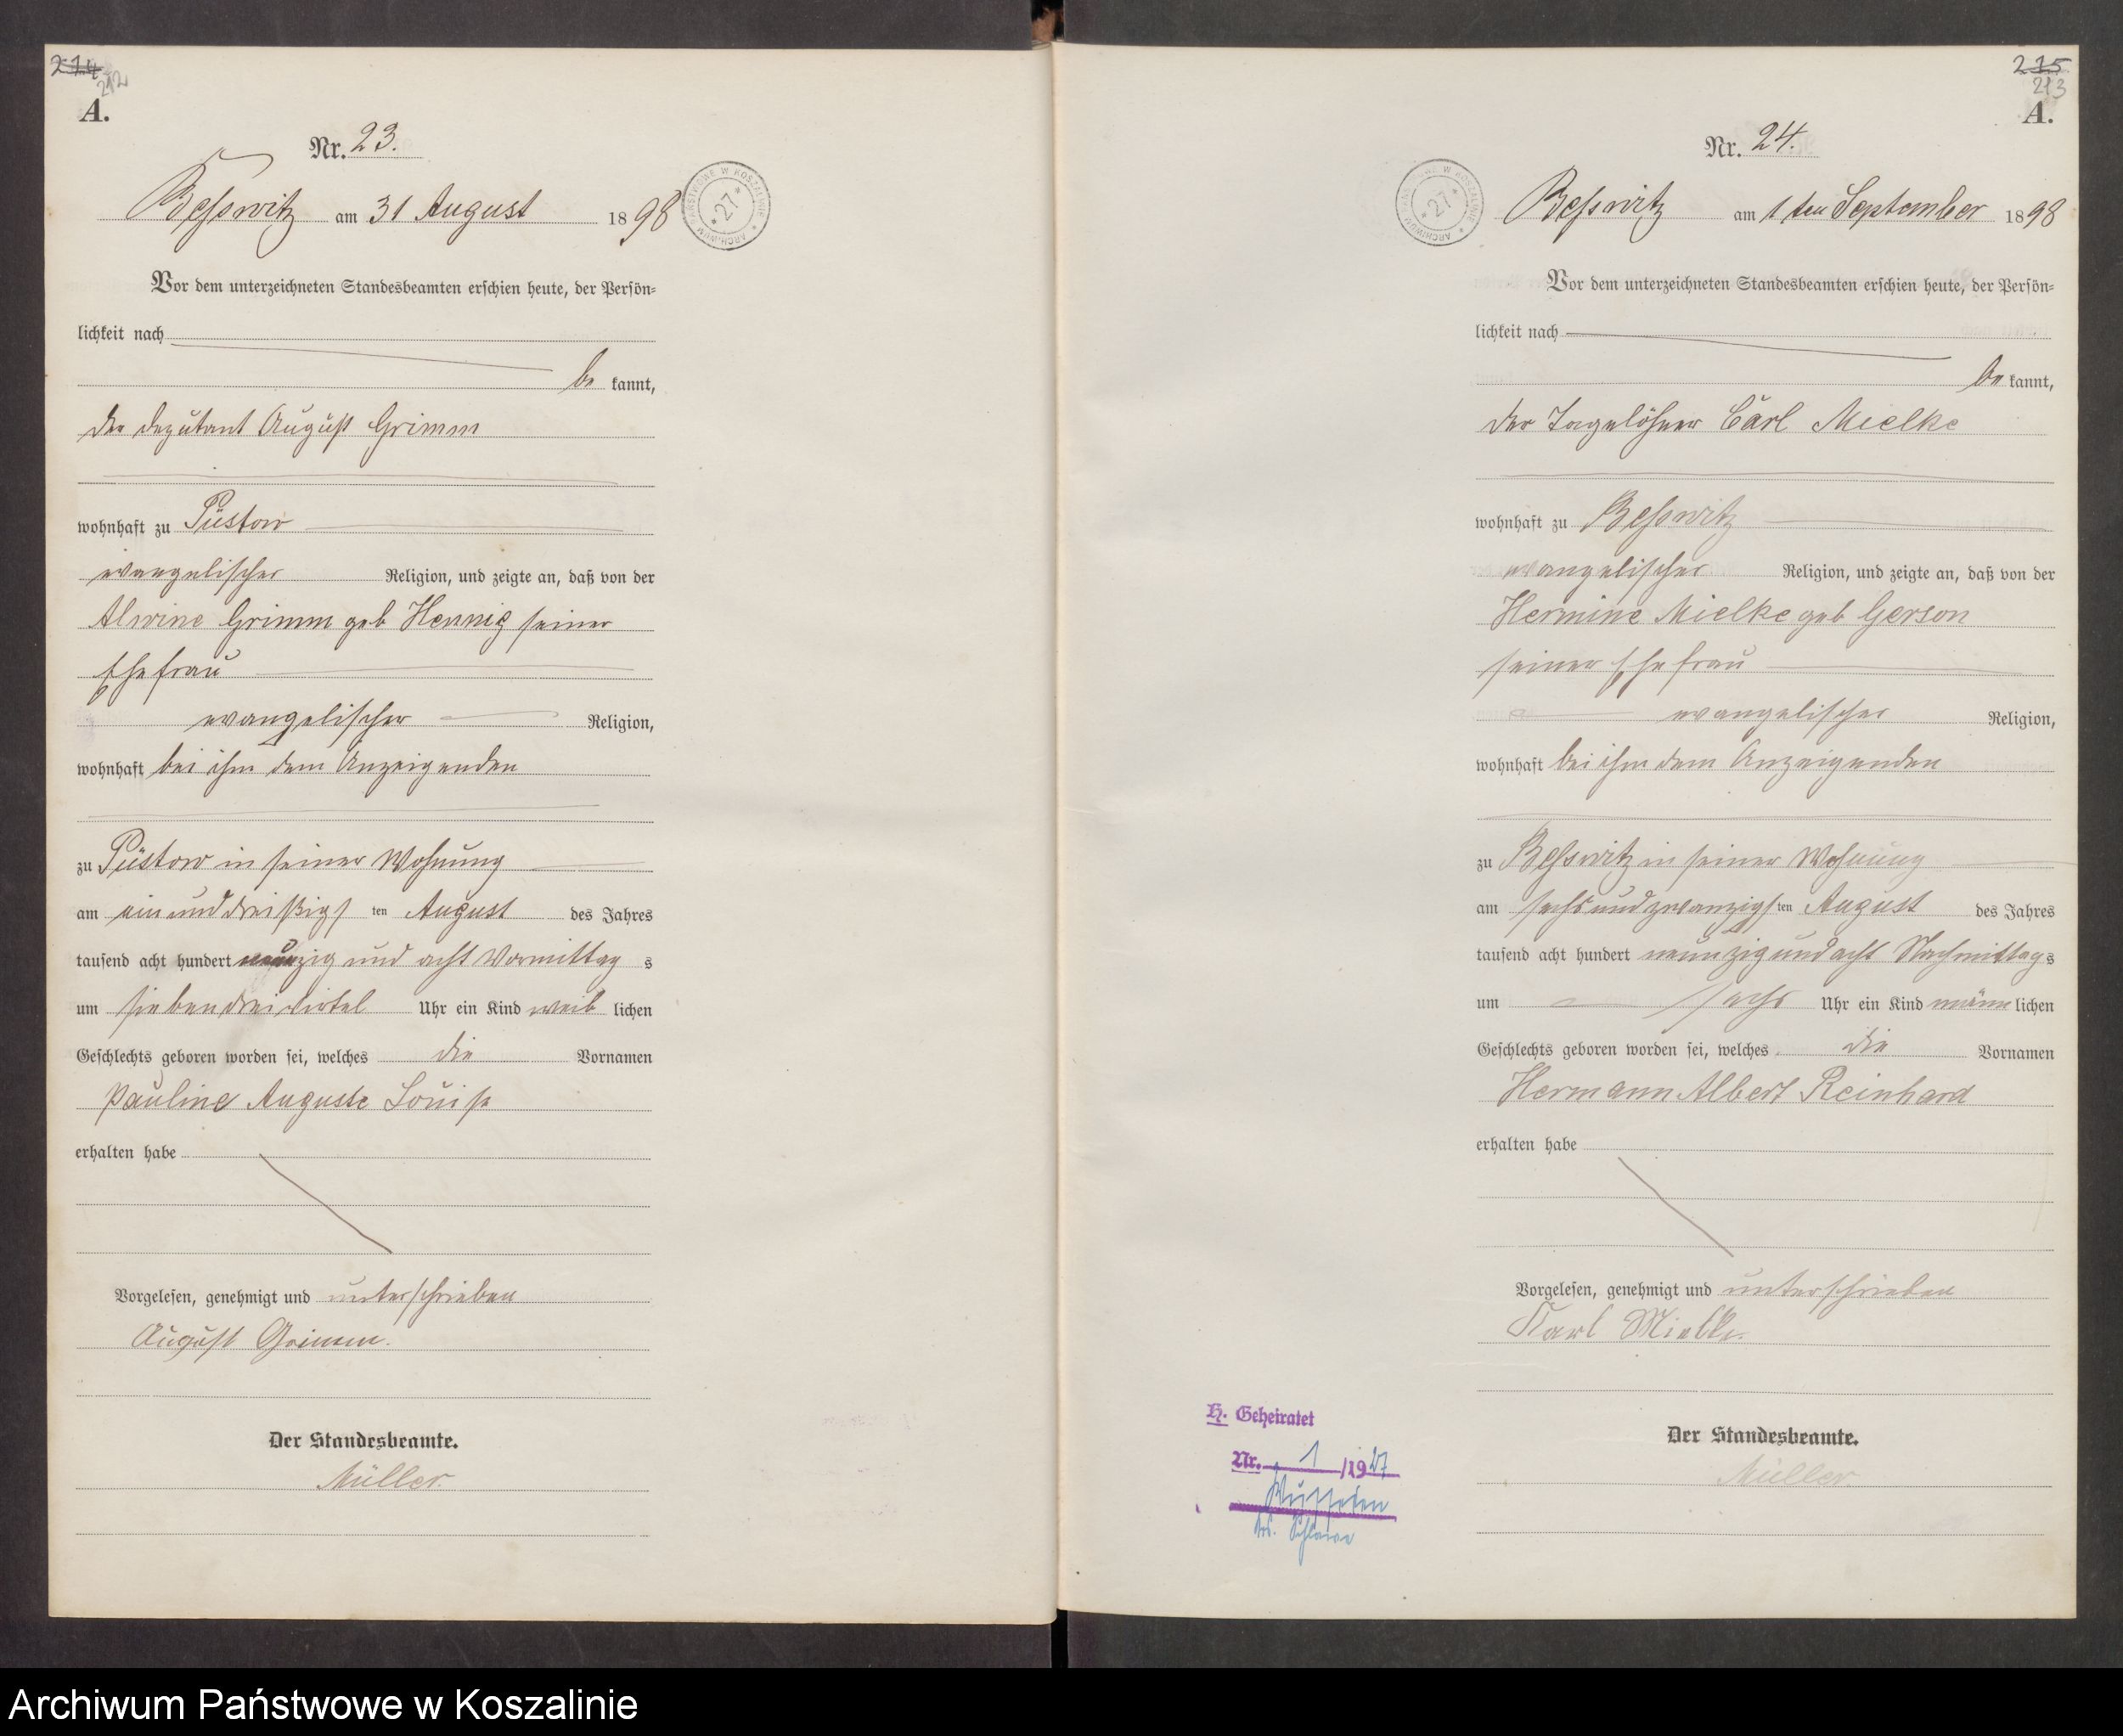 214
212
A.
Nr. 23.
Beßwitz am 31 August 1898
ARCHIWUM PAŃSTWOWE W KOSZALINIE * 27 *
Vor dem unterzeichneten Standesbeamten erschien heute, der Persön-
lichkeit nach
be kannt,
der Deputant August Grimm
wohnhaft zu Püstow
evangelischer Religion, und zeigte an, daß von der
Alwine Grimm geb Hennig seiner
Ehefrau
evangelischer Religion,
wohnhaft bei ihm dem Anzeigenden
zu Püstow in seiner Wohnung
am ein und dreißigs ten August des Jahres
tausend acht hundert neunzig und acht Vormittag s
um sieben dreiviertel Uhr ein Kind weib lichen
Geschlechts geboren worden sei, welches die Vornamen
Pauline Auguste Louise
erhalten habe
Vorgelesen, genehmigt und unterschrieben
August Grimm.
Der Standesbeamte.
Müller.
215
213
A.
Nr. 24.
ARCHIWUM W KOSZALINIE * 27 *
Beßwitz am 1 ten September 1898
Vor dem unterzeichneten Standesbeamten erschien heute, der Persön-
lichkeit nach
be kannt,
der Tagelöhner Carl Mielke
wohnhaft zu Beßwitz
evangelischer Religion, und zeigte an, daß von der
Hermine Mielke geb Gerson
seiner Ehefrau
evangelischer Religion,
wohnhaft bei ihm dem Anzeigenden
zu Beßwitz in seiner Wohnung
am sechs und zwanzigs ten August des Jahres
tausend acht hundert neunzig und acht Nachmittag s
um sechs Uhr ein Kind männ lichen
Geschlechts geboren worden sei, welches die Vornamen
Hermann Albert Reinhard
erhalten habe
Vorgelesen, genehmigt und unterschrieben
Karl Mielke.
Der Standesbeamte.
Müller.
H. Geheiratet
Nr. 1 /1927
Wussowen
Krs. Schlawe
Archiwum Państwowe w Koszalinie